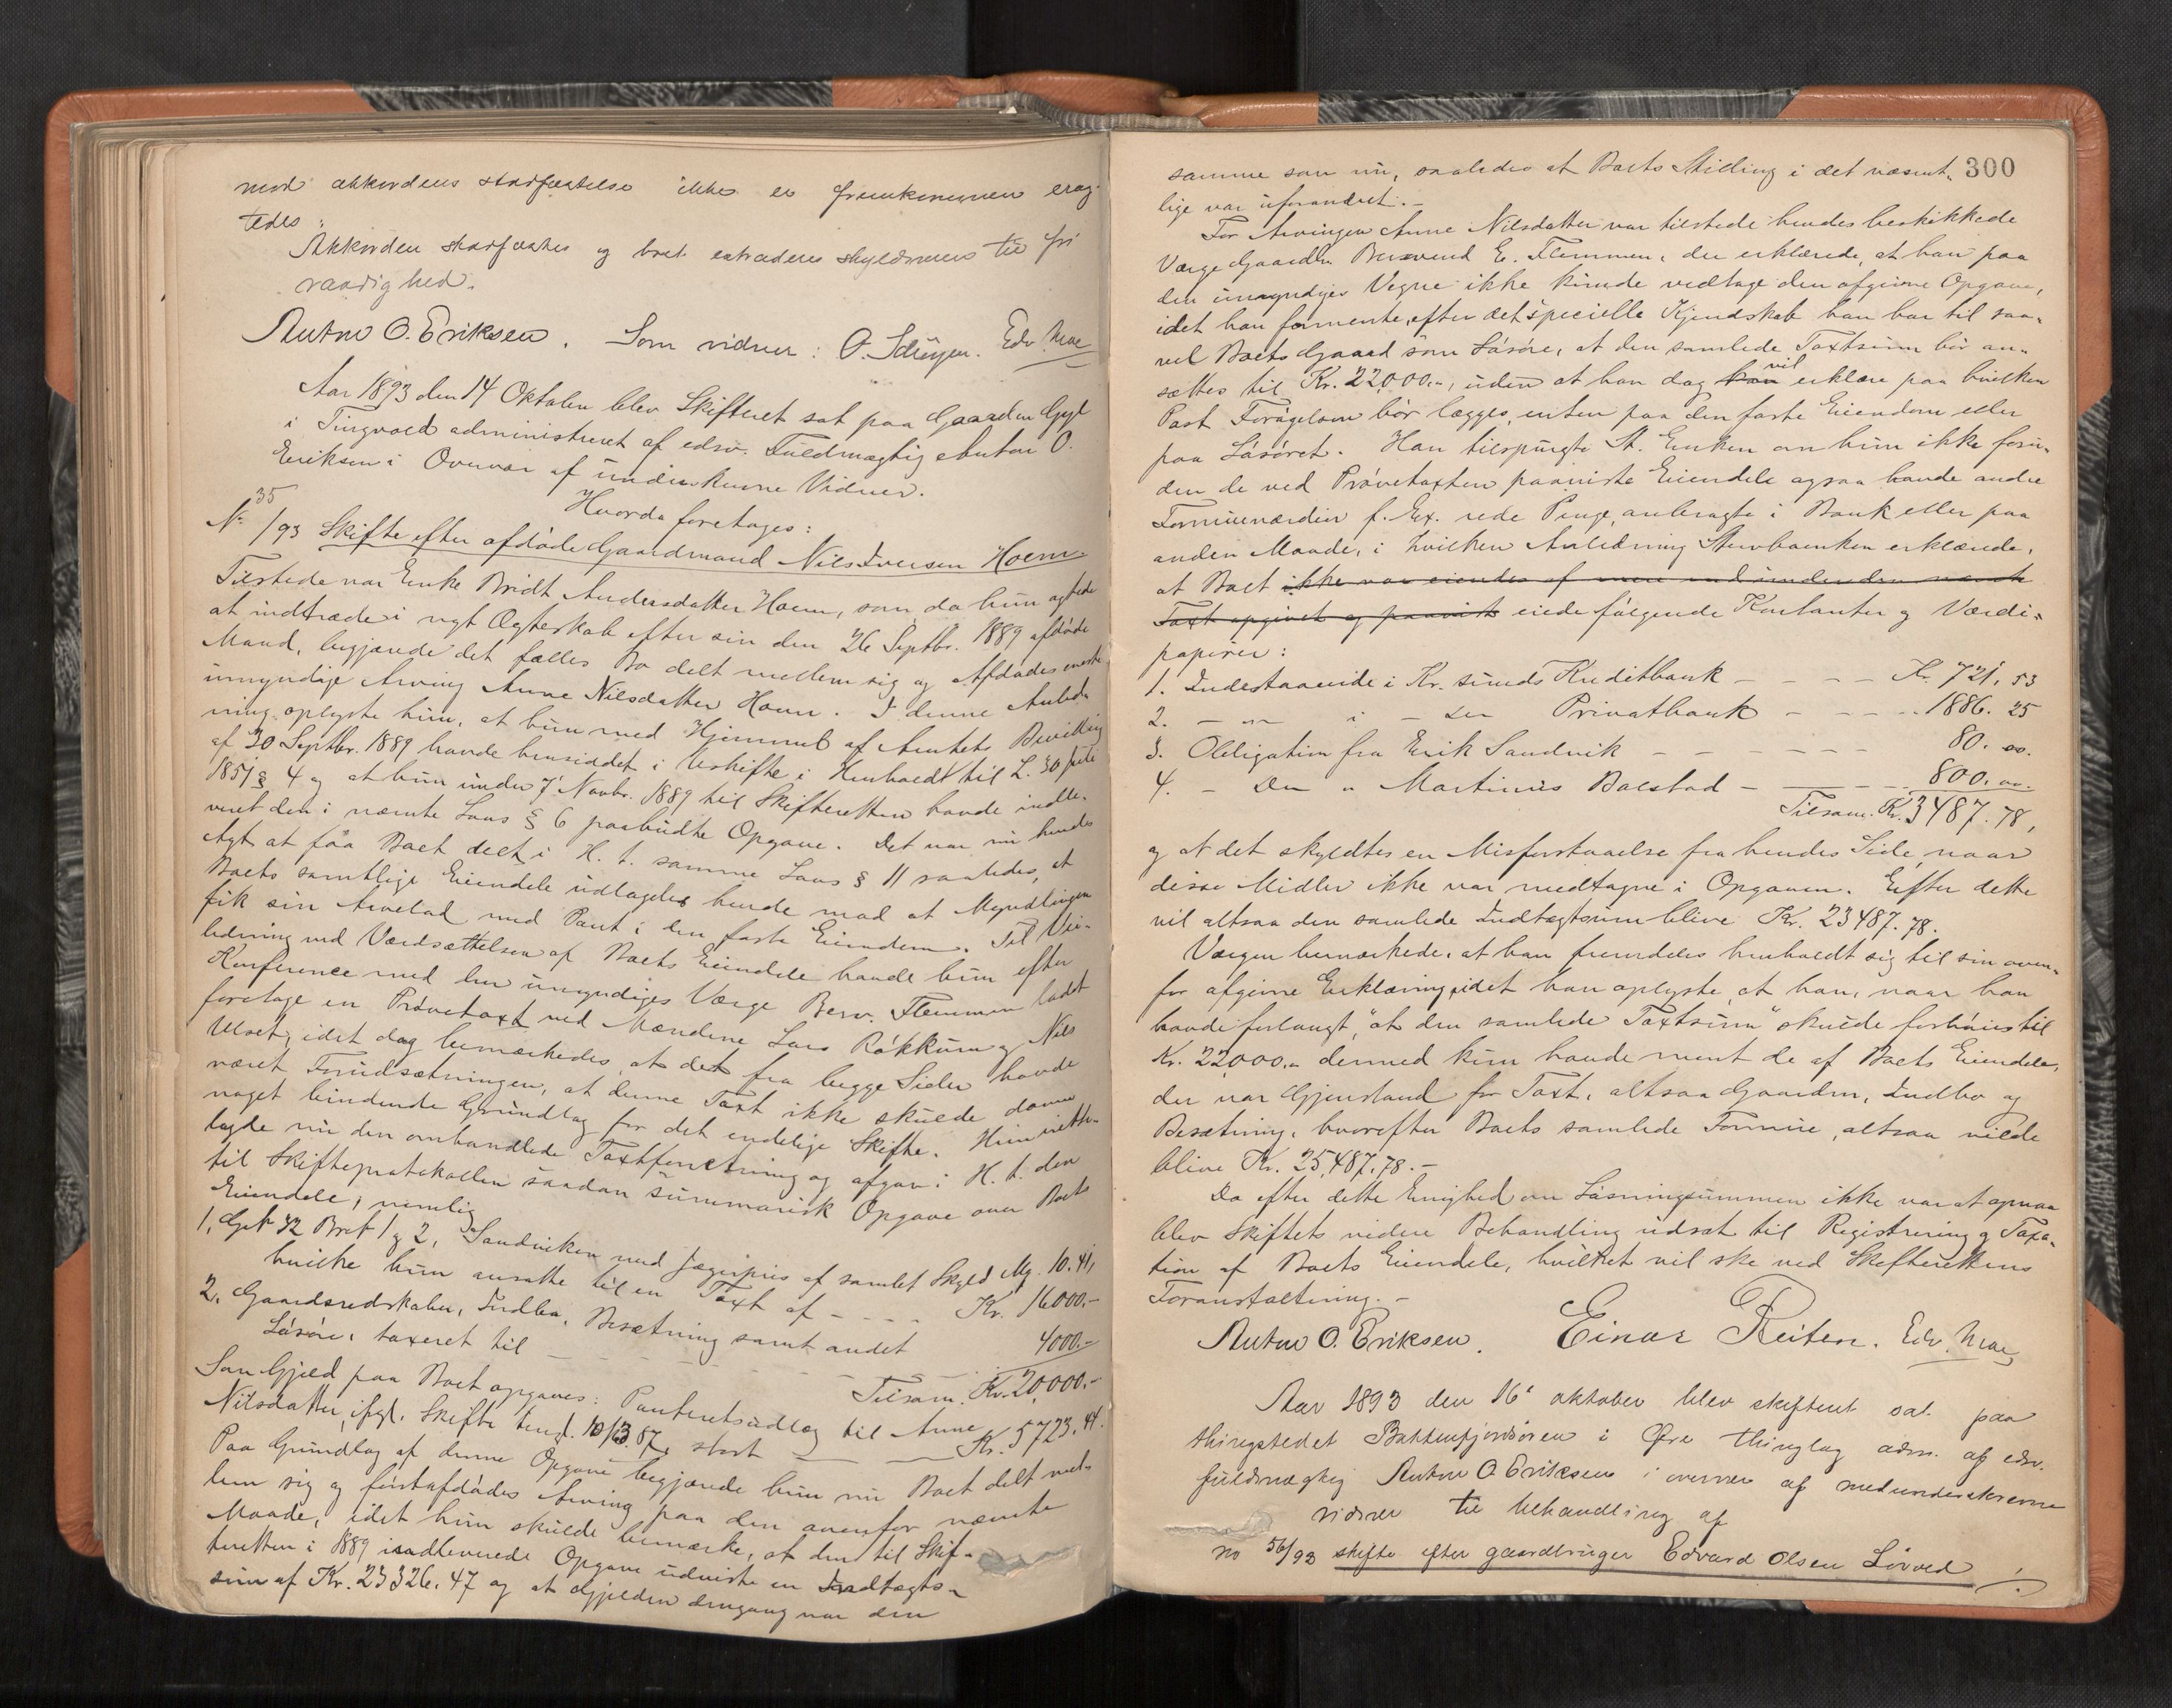 mod akkordens stadfæstelse ikke er fremkommen erag-
tedes:
Akkorden stadfæstes og boet extraderes skyldnerens til fri
raadighed.
Anton O. Eriksen. Som vidner: O. Edv. Moe
Aar 1893 den 14 Oktober blev Skifteret sat paa Gaarden Gyl
i Tingvold administreret af edsv. Fuldmægtig Anton O.
Eriksen i Overvær af underskrevne Vidner.
Hvorda foretoges:
No 35/93 Skifte efter afdøde Gaardmand Nils Iversen Hoem
Tilstede var Enke Bridt Andersdatter Hoem, som da hun agtede
at indtræde i nyt Ægteskab efter sin den 26 Septbr. 1889 afdøde
Mand, begjærede det fælles Bo delt mellem sig og Afdødes eneste
umyndige Arving Anne Nilsdatter Hoem. I denne Anled-
ning oplyste hun, at hun med Hjemmel af Amtets Bevilling
af 30 Septbr. 1889 havde hensiddet i Uskifte i Henhold til L. 30 juli
1851 § 4 og at hun under 7 Novbr. 1889 til Skifteretten havde indle-
veret den i nævnte Lovs § 6 paabudte Opgave. Det var nu hendes
Agt at faa Boet delt i H. t. samme Lovs § 11 saaledes, at
Boets samtlige Eiendele udlagdes hende mod at Myndlingen
fik sin Arvelod med Pant i den faste Eiendom. Til Vei-
ledning ved Værdsættelsen af Boets Eiendele havde hun efter
Konference med den umyndiges Værge Bersv. Flemmen ladet
foretage en Prøvetaxt ved Mændene Lars Røkkum og Nils
Ulset, idet dog bemærkedes, at det fra begge Sider havde
været Forudsætningen, at denne Taxt ikke skulde danne
noget bindende Grundlag for det endelige Skifte. Hun
lagde nu den omhandlede Taxtforretning og afgav i H. t. den
til Skifteprotokollen saadan summarisk Opgave over Boets
Eiendele, nemlig
1. Gaards No 32 Brd 1 og 2, Sandviken med Jægerpris af samlet Skyld Mk. 10.41,
hvilke hun ansatte til en Taxt af - - - - Kr. 16000.-
2. Gaardsredskaber, Indbo, Besætning samt andet
Løsøre, taxeret til - - - - 4000.-
Tilsam. Kr. 20,000.-
Som Gjæld paa Boet opgaves: Panteretsudlæg til Anne
Nilsdatter, ifgl. Skifte tingl. 10/3 87, stort - - Kr. 5723.44.
Paa Grundlag af denne Opgave begjærede hun nu Boet delt mel-
lem sig og førstafdødes Arving paa den ovenfor nævnte
Maade, idet hun skulde bemærke, at den til Skif-
teretten i 1889 indleverede Opgave udviste en Indtægts-
sum af Kr. 23326.47 og at Gjælden dengang var den
300
samme som nu, saaledes at Boets Stilling i det væsent-
lige var uforandret.-
For Arvingen Anne Nilsdatter var tilstede hendes beskikkede
Værge Gaardbr. Bersvend E. Flemmen, der erklærede, at han paa
den umyndiges Vegne ikke kunde vedtage den afgivne Opgave,
idet han formente, efter det specielle Kjendskab han har til saa-
vel Boets Gaard som Løsøre, at den samlede Taxtsum bør an-
sættes til Kr. 22,000.-, uden at han dog kan vil erklære paa hvilken
Post Forøgelsen bør lægges, enten paa den faste Eiendom eller
paa Løsøret. Han tilspurgte St. Enken om hun ikke foru-
den de ved Prøvetaxten paaviste Eiendele ogsaa havde andre
Formuesværdier f. Ex. rede Penge, anbragte i Bank eller paa
anden Maade, i hvilken Anledning Stervboenken erklærede,
at Boet ikke var eiendes af mere end under den nævnte
Taxt opgivet og paavist eiede følgende Kontanter og Værdi-
papirer:
1. Indestaaende i Kr. sunds Kreditbank - - - - Kr. 721,53
2. - " - i - Do Privatbank - - - - 1886.25
3. Obligation fra Erik Sandvik - - - - - 80.00.
4. - Do " Martinus Bolstad - - - - 800.00.
Tilsam. Kr. 3487.78,
og at det skyldtes en Misforstaaelse fra hendes Side, naar
disse Midler ikke var medtagne i Opgaven. Efter dette
vil altsaa den samlede Indtægtsum blive Kr. 23487.78.
Værgen bemærkede, at han fremdeles henholdt sig til sin oven-
for afgivne Erklæring, idet han oplyste, at han, naar han
havde forlangt, "at den samlede Taxtsum" skulde forhøies til
Kr. 22000.- dermed kun havde ment de af Boets Eiendele,
der var Gjenstand for Taxt, altsaa Gaarden, Indbo og
Besætning, hvorefter Boets samlede Formue, altsaa vilde
blive Kr. 25,487.78.-
Da efter dette Enighed om Løsningssummen ikke var at opnaa
blev Skiftets videre Behandling udsat til Registrering og Taxa-
tion af Boets Eiendele, hvilket vil ske ved Skifterettens
Foranstaltning.-
Anton O. Eriksen. Einar Reiten. Edv. Moe,
Aar 1893 den 16' oktober blev skifteret sat paa
thingstedet Battenfjordsøren i Øre thinglag adm. af edsv.
fuldmægtig Anton O. Eriksen i overvær af medunderskrevne
vidner til behandling af
No 56/93 skifte efter gaardbruger Edvard Olsen Løvved